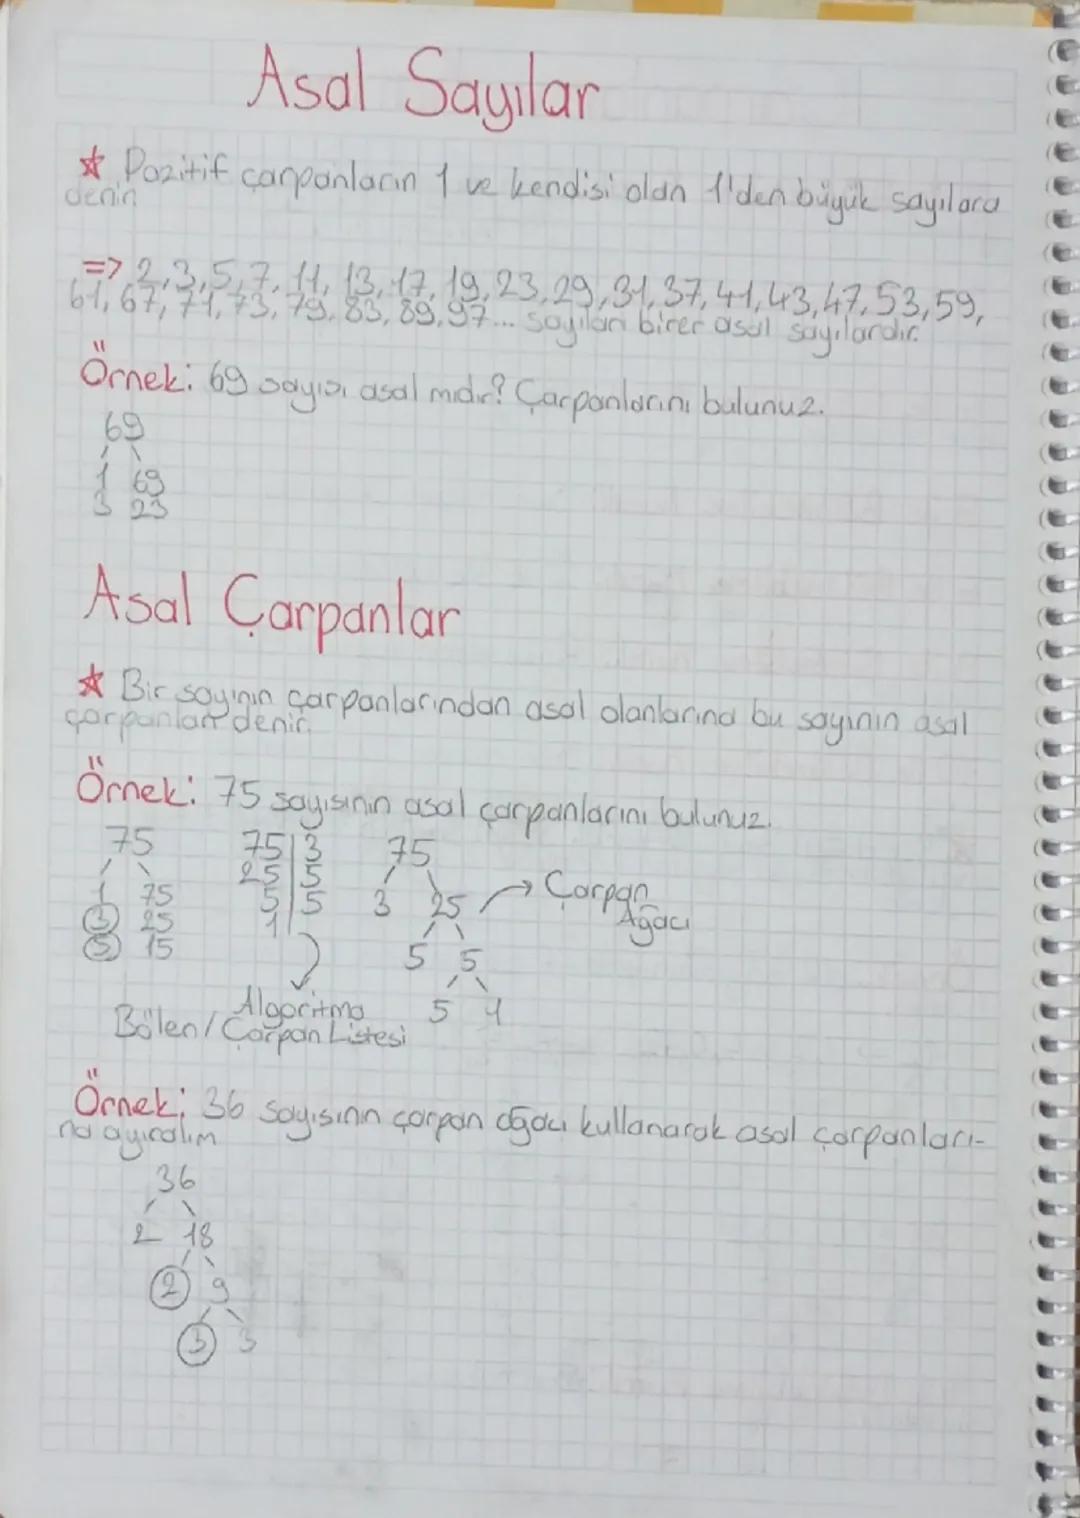 Asal Sayılar
☆ Pozitif çarpanların 1 ve kendisi olan 1'den büyük sayılara
denir
=> 2,3,5,7,11,13,17,19,23,29,31,37,41,43,47,53,59,
61,67,71,73,79,83,89,97... sayıları birer asal sayılardır.
Örnek: 69 sayısı asal mıdır? Çarpanlarını bulunuz.
69
1 69
3 23
Asal Çarpanlar
☆ Bir sayının çarpanlarından asal olanlarına bu sayının asal
çarpanları denir.
Örnek: 75 sayısının asal çarpanlarını bulunuz.
75 75|3 75
25|5
1 75 5|5 3 25 → Çarpan
3 25 1 Ağacı
5 15 5 5
Algoritma 5 1
Bölen/Çarpan Listesi
Örnek: 36 sayısının çarpan ağacı kullanarak asal çarpanları-
na ayıralım
36
2 18
2 9
3 3